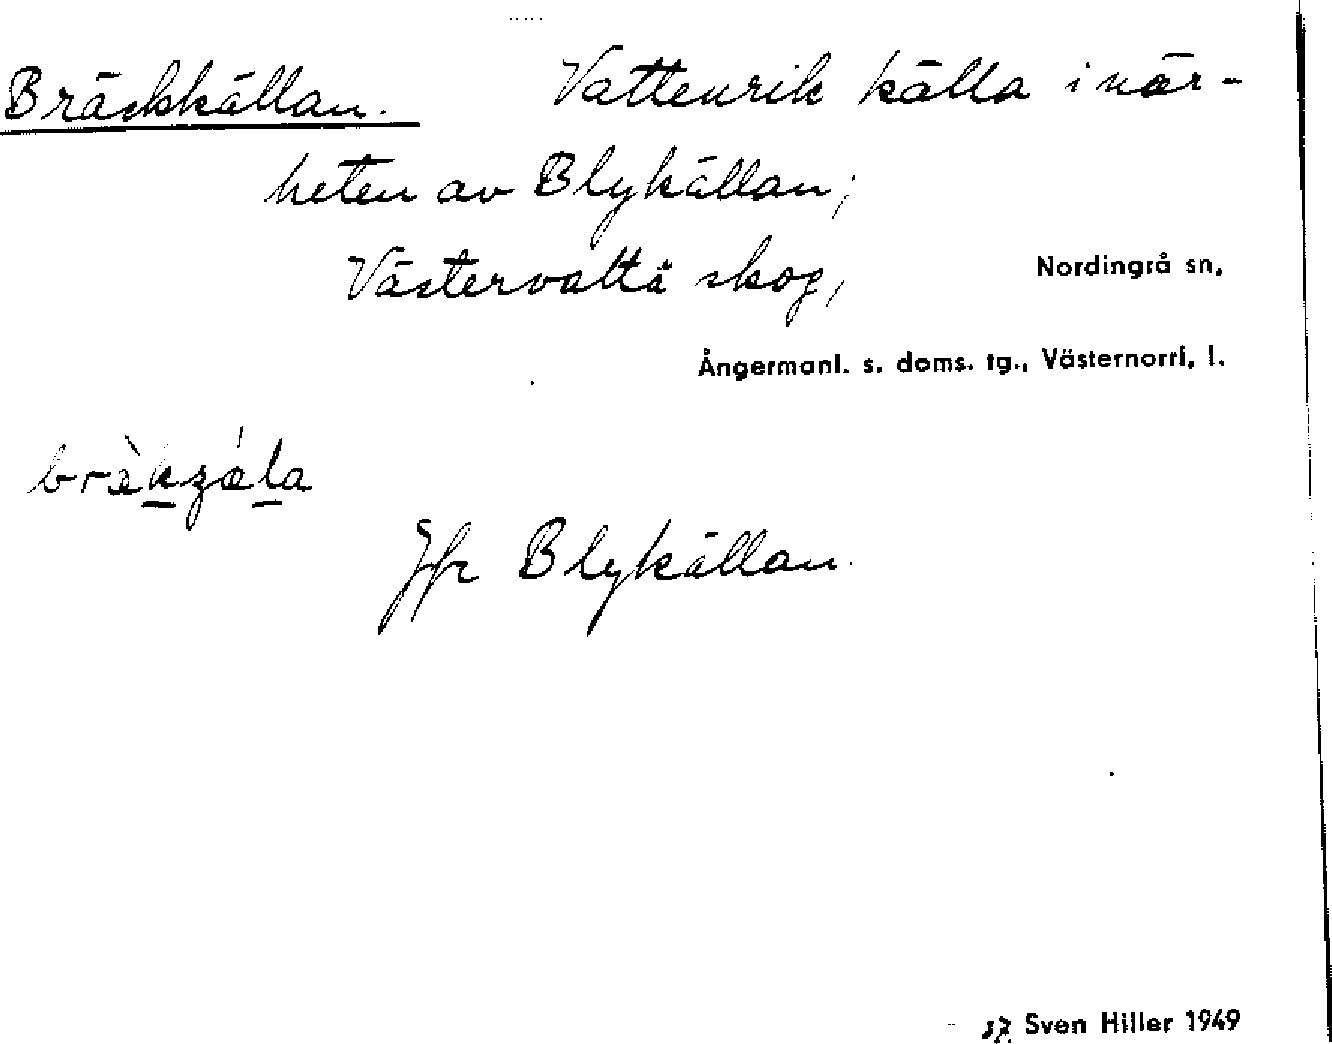 Bräckkällan. Vattenrik källa i när-
heten av Blykällan;
Västervåltå skog, Nordingrå sn,
Ångermanl. s. doms. tg., Västernorrl. l.
Jfr Blykällan.
Sven Hiller 1949